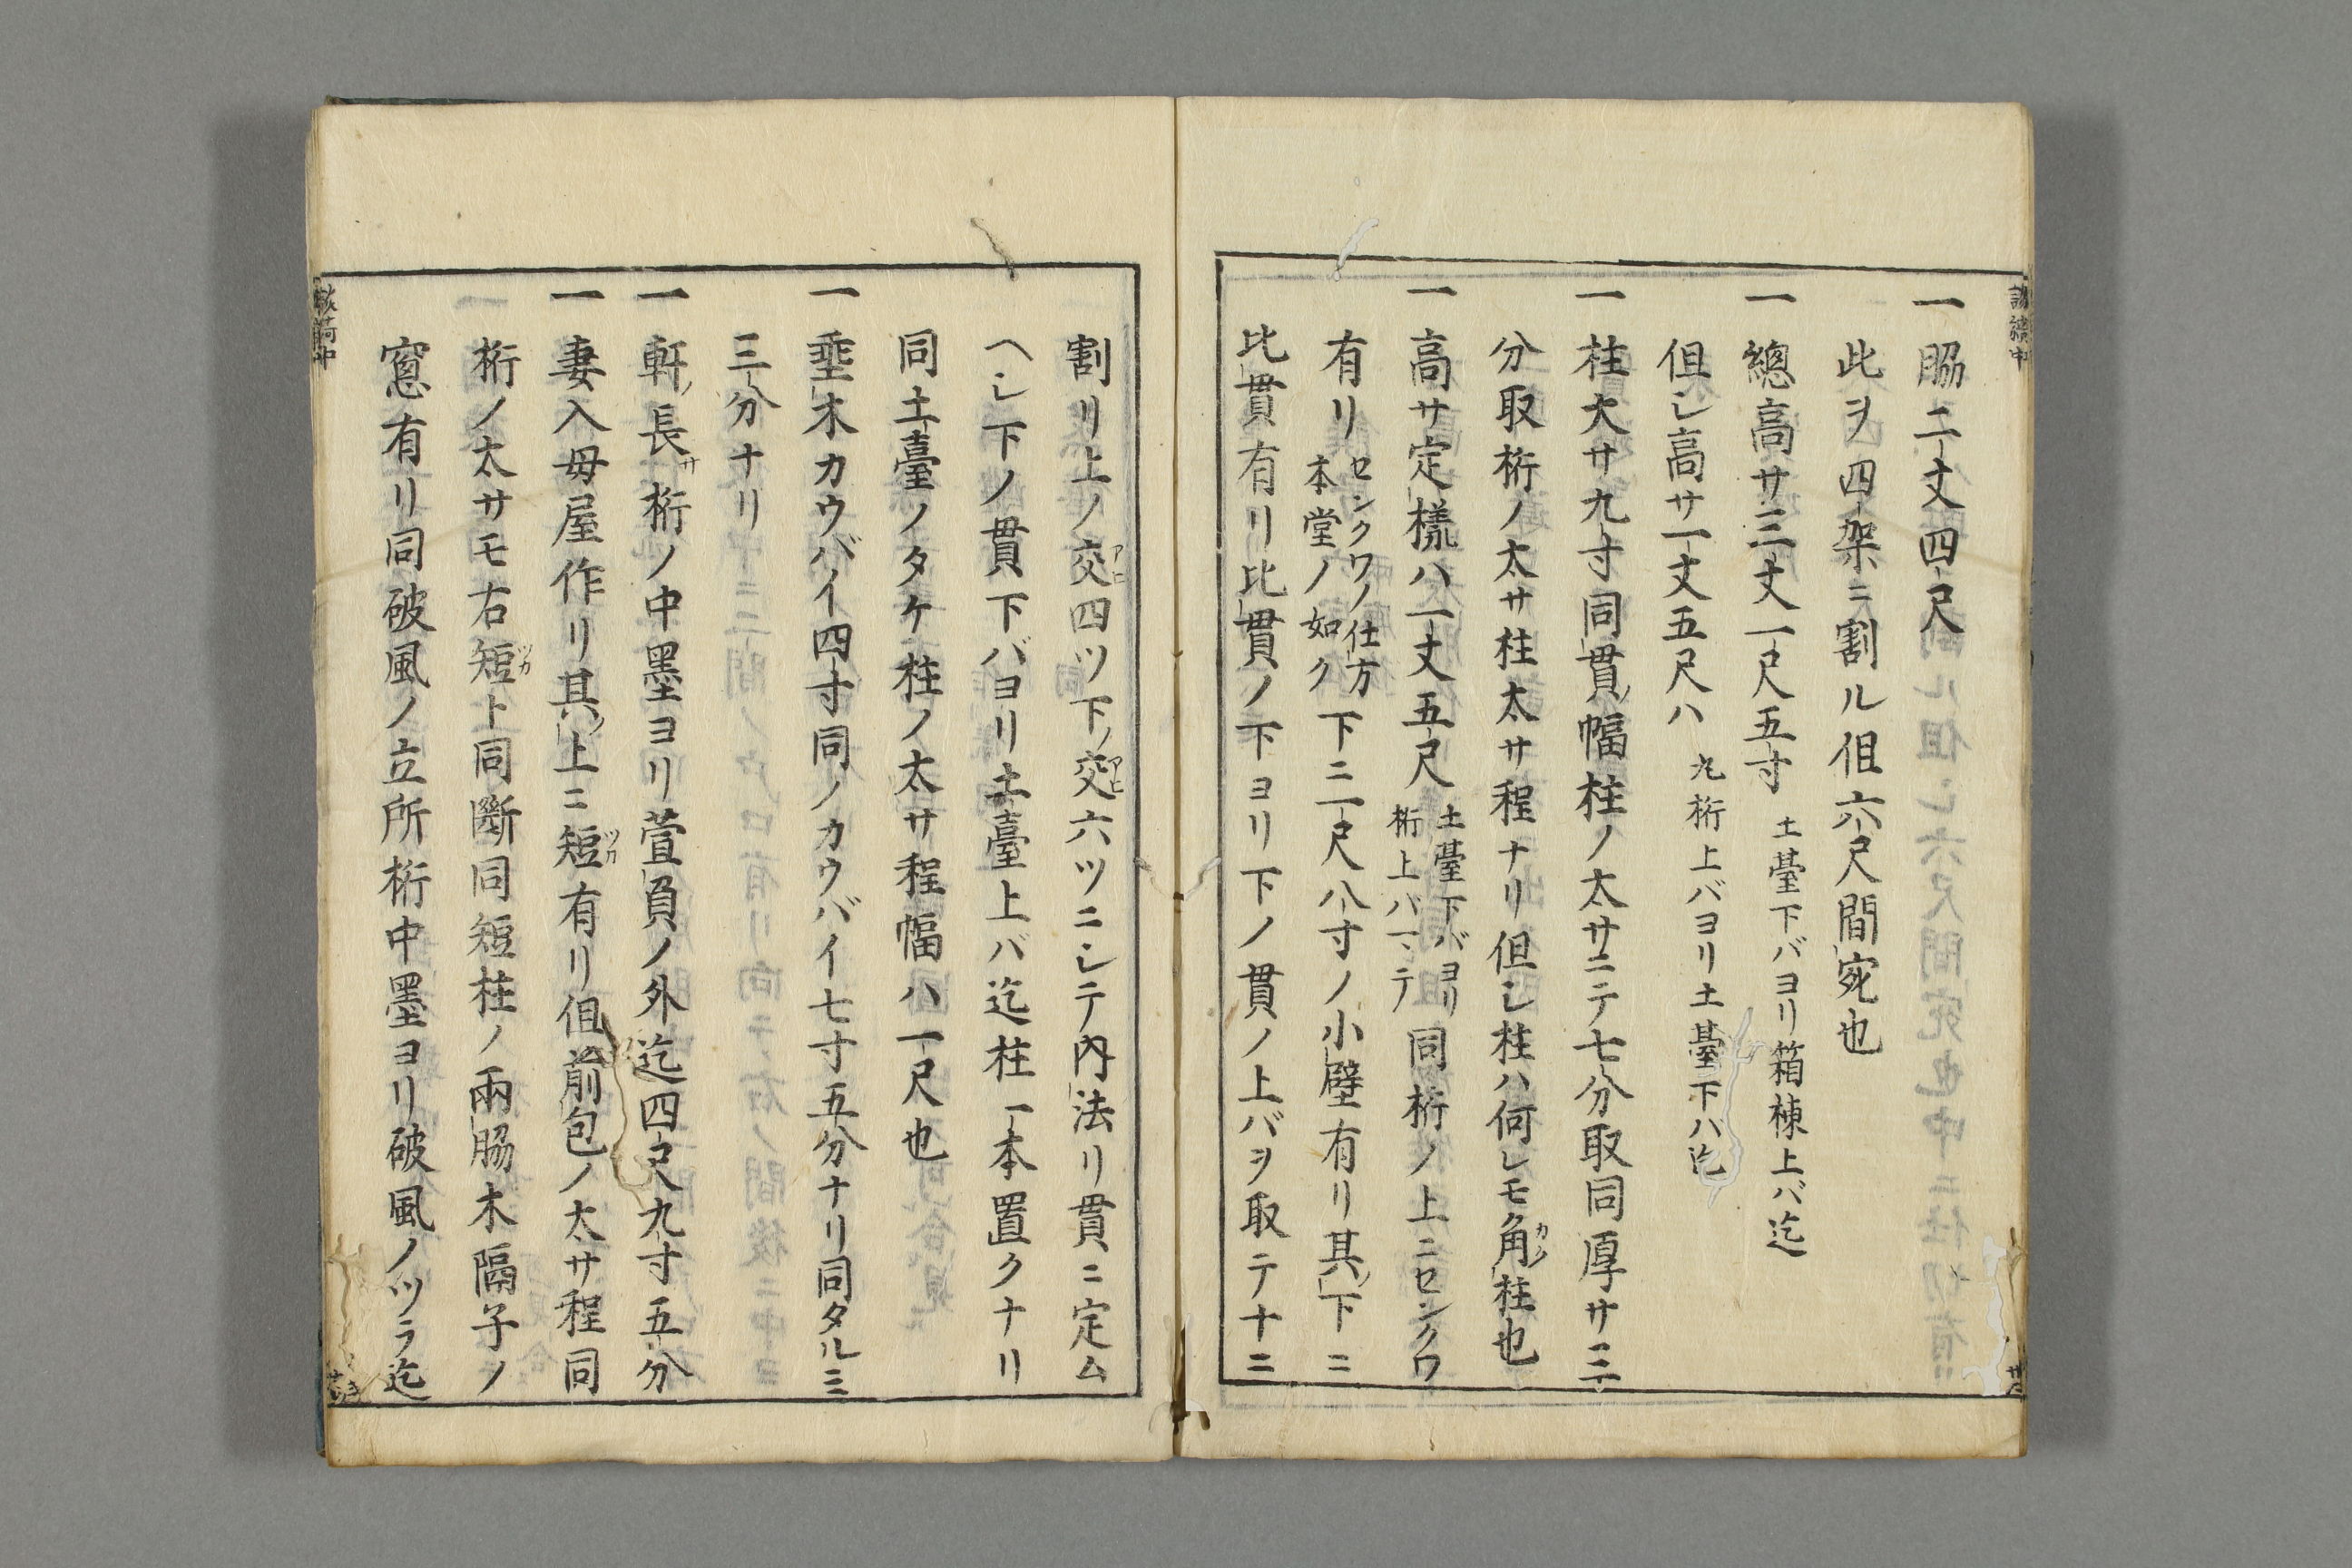 一脇二丈四尺
此ヲ四架ニ割ル但六尺間宛也
一總高サ三丈一尺五寸 土臺下バヨリ箱棟上バ迄
但シ高サ一丈五尺ハ 丸桁上バヨリ土臺下バ迄
一柱大サ九寸同貫幅柱ノ太サニテ七分取同厚サ三
分取桁ノ太サ柱太サ程ナリ但シ柱ハ何レモ角柱也
カク
一高サ定樣ハ一丈五尺 土臺下バヨリ桁上バニテ 同桁ノ上ニセンクワ
有リ センクワノ仕方本堂ノ如ク 下ニ一尺八寸ノ小壁有リ其下ニ
比貫有リ比貫ノ下ヨリ下ノ貫ノ上バヲ取テ十ニ
割リ上ノ交四ツ下ノ交六ツニシテ內法リ貫ニ定ム
アヒ
アヒ
ヘシ下ノ貫下バヨリ土臺上バ迄柱一本置クナリ
同土臺ノタケ柱ノ太サ程幅ハ一尺也
一埀木カウバイ四寸同ノカウバイ七寸五分ナリ同タルミ
三分ナリ
一軒ノ長サ桁ノ中墨ヨリ萱負ノ外迄四尺九寸五分
一妻入母屋作リ其ノ上ニ短有リ但前包ノ太サ程同
ツカ
桁ノ太サモ右短ト同斷同短柱ノ兩脇木隔子ノ
ツカ
窓有リ同破風ノ立所桁中墨ヨリ破風ノツラ迄